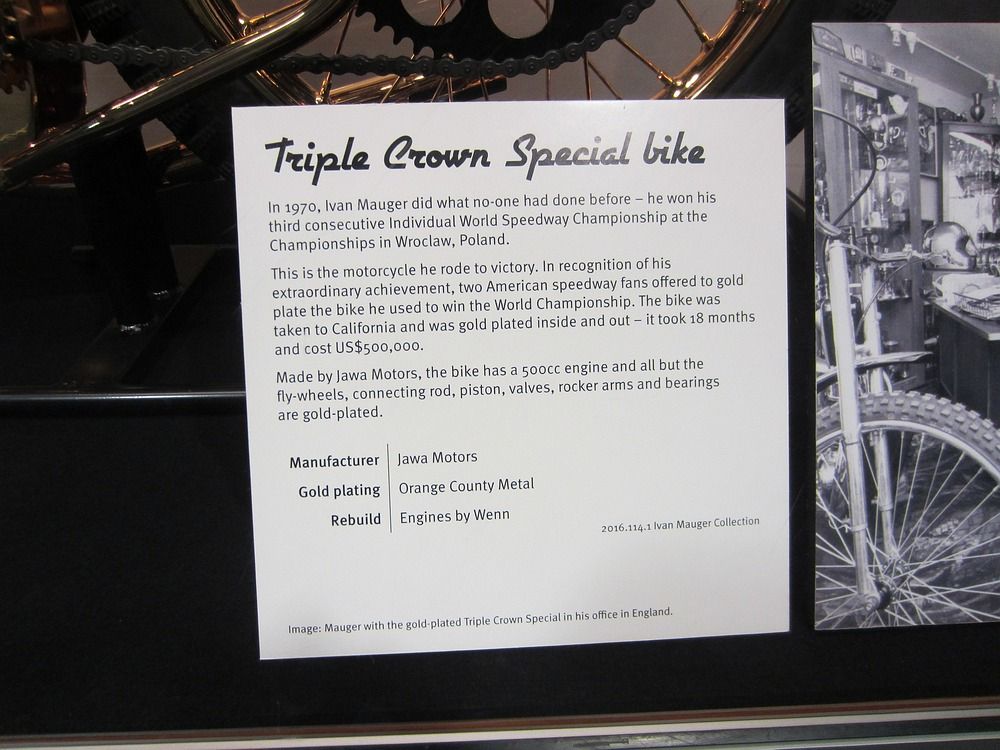 Triple Crown Special bike
In 1970, Ivan Mauger did what no-one had done before – he won his
third consecutive Individual World Speedway Championship at the
Championships in Wroclaw, Poland.
This is the motorcycle he rode to victory. In recognition of his
extraordinary achievement, two American speedway fans offered to gold
plate the bike he used to win the World Championship. The bike was
taken to California and was gold plated inside and out – it took 18 months
and cost US$500,000.
Made by Jawa Motors, the bike has a 500cc engine and all but the
fly-wheels, connecting rod, piston, valves, rocker arms and bearings
are gold-plated.
Manufacturer Jawa Motors
Gold plating Orange County Metal
Rebuild Engines by Wenn
2016.114.1 Ivan Mauger Collection
Image: Mauger with the gold-plated Triple Crown Special in his office in England.